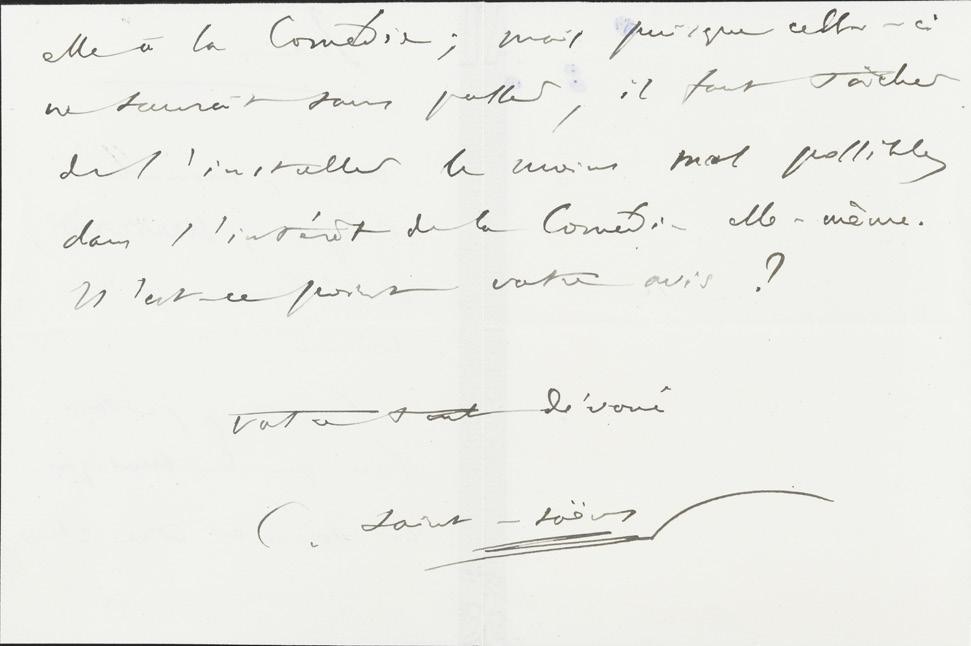 elle à la Comédie ; mais puisque celle-ci
ne saurait s'en passer, il faut tâcher
de l'installer le moins mal possible
dans l'intérêt de la Comédie elle-même.
N'est-ce point votre avis ?
votre tout dévoué
C. Saint-Saëns